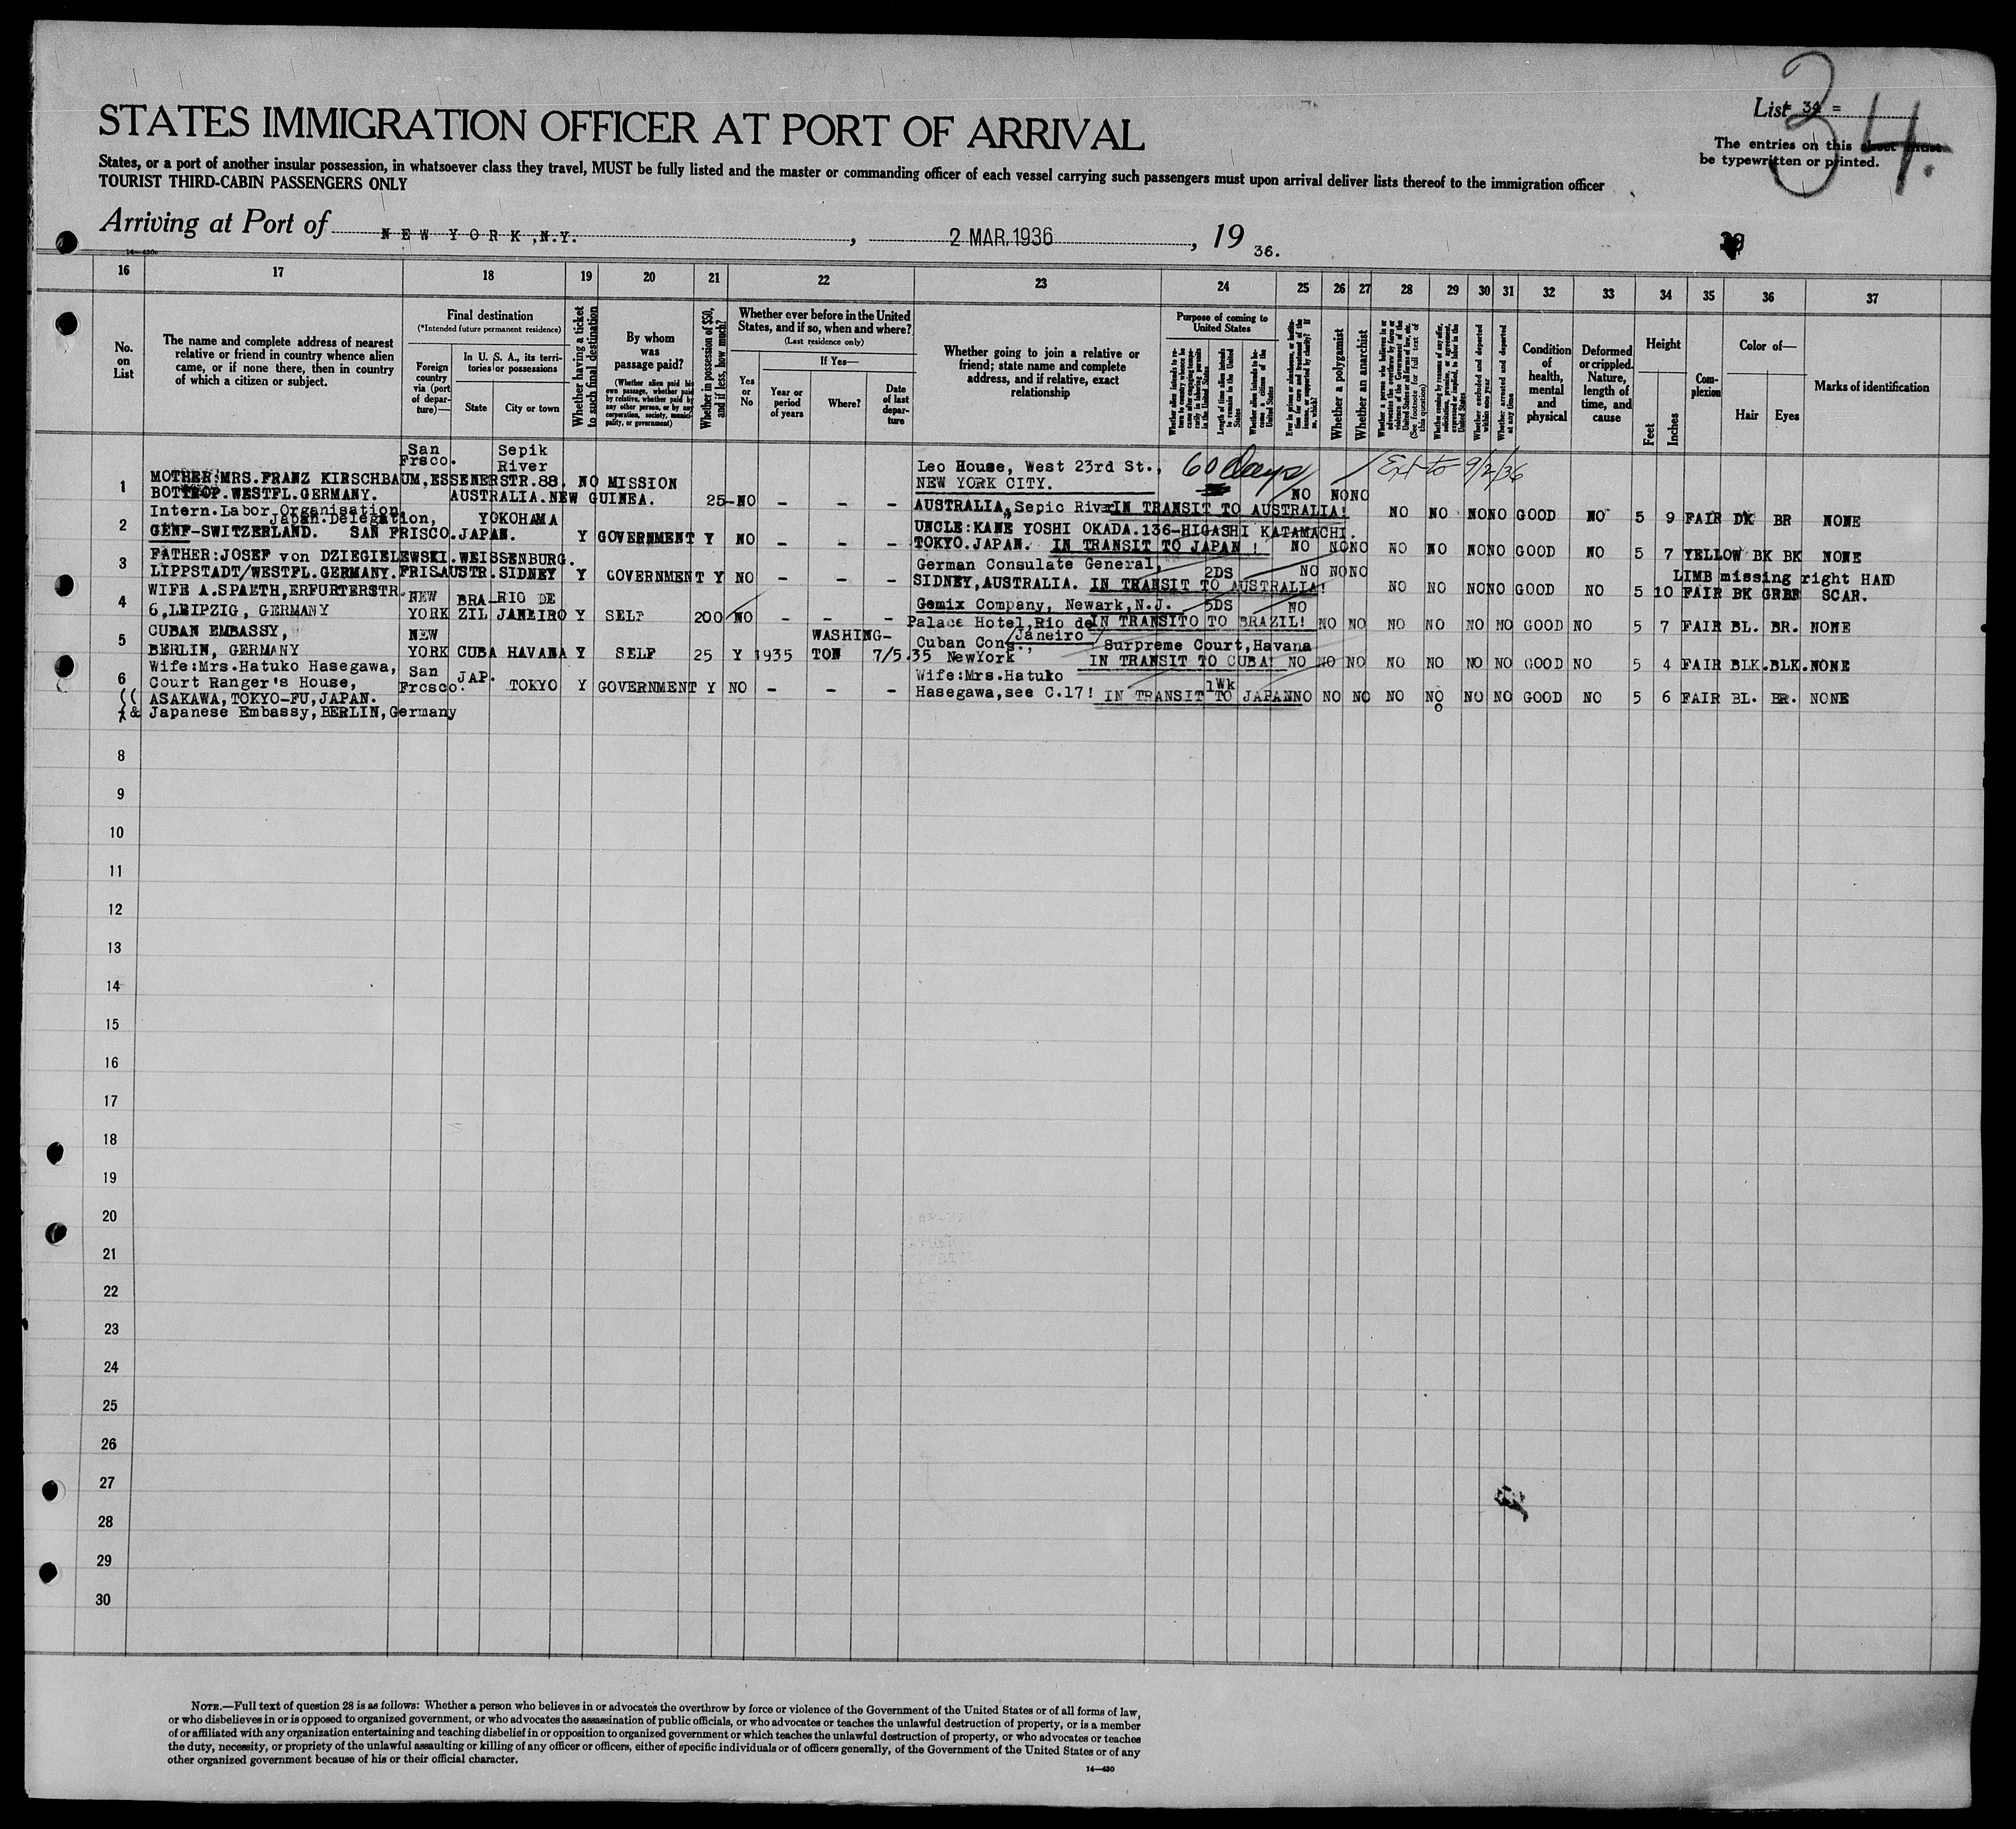 STATES IMMIGRATION OFFICER AT PORT OF ARRIVAL
List 34 =
34.
The entries on this sheet must
be typewritten or printed.
States, or a port of another insular possession, in whatsoever class they travel, MUST be fully listed and the master or commanding officer of each vessel carrying such passengers must upon arrival deliver lists thereof to the immigration officer
TOURIST THIRD-CABIN PASSENGERS ONLY
Arriving at Port of NEW YORK, N.Y. , 2 MAR. 1936 , 19 36.
14—430
16 17 18 19 20 21 22 23 24 25 26 27 28 29 30 31 32 33 34 35 36 37
No. on List
The name and complete address of nearest relative or friend in country whence alien came, or if none there, then in country of which a citizen or subject.
Final destination
(*Intended future permanent residence)
Foreign country via (port of departure)—
In U. S. A., its territories or possessions
State
City or town
Whether having a ticket to such final destination
By whom was passage paid?
(Whether alien paid his own passage, whether paid by relative, whether paid by any other person, or by any corporation, society, municipality, or government)
Whether in possession of $50, and if less, how much?
Whether ever before in the United States, and if so, when and where?
(Last residence only)
Yes or No
If Yes—
Year or period of years
Where?
Date of last departure
Whether going to join a relative or friend; state name and complete address, and if relative, exact relationship
Purpose of coming to United States
Length of time alien intends to remain in the United States
Whether alien intends to become a citizen of the United States
Whether a polygamist
Whether an anarchist
(See footnote for full text of this question)
Whether excluded and deported within one year
Whether arrested and deported at any time
Condition of health, mental and physical
Deformed or crippled. Nature, length of time, and cause
Height
Feet
Inches
Complexion
Color of—
Hair
Eyes
Marks of identification
San Frsco. Sepik River
Leo House, West 23rd St., 60 days Ext to 9/2/36
1 MOTHER:MRS.FRANZ KIRSCHBAUM,ESSENERSTR.88. NO MISSION NEW YORK CITY.
BOTTROP.WESTFL.GERMANY. AUSTRALIA.NEW GUINEA. 25- NO - - - NO NO NO
Intern.Labor Organisation, AUSTRALIA, Sepic River IN TRANSIT TO AUSTRALIA! NO NO NO NO GOOD NO 5 9 FAIR DK BR NONE
2 Japan.Delegation, YOKOHAMA UNCLE:KANE YOSHI OKADA.136-HIGASHI KATAMACHI.
GENF-SWITZERLAND. SAN FRISCO.JAPAN. Y GOVERNMENT Y NO - - - TOKYO.JAPAN. IN TRANSIT TO JAPAN ! NO NO NO NO NO NO NO GOOD NO 5 7 YELLOW BK BK NONE
3 FATHER:JOSEF von DZIEGIELEWSKI.WEISSENBURG. German Consulate General,
LIPPSTADT/WESTFL.GERMANY.FRIS AUSTR.SIDNEY Y GOVERNMENT Y NO - - - SIDNEY,AUSTRALIA. 2DS IN TRANSIT TO AUSTRALIA! NO NO NO NO NO NO NO GOOD NO 5 10 FAIR BK GREN LIMB missing right HAND SCAR.
4 WIFE A.SPAETH,ERFURTERSTR. NEW BRA- RIO DE Gemix Company, Newark,N.J. 5DS NO
6,LEIPZIG, GERMANY YORK ZIL JANEIRO Y SELF 200 NO - - - Palace Hotel,Rio de Janeiro IN TRANSITO TO BRAZIL! NO NO NO NO NO NO GOOD NO 5 7 FAIR BL. BR. NONE
5 CUBAN EMBASSY, NEW WASHING- Cuban Cons., Surpreme Court,Havana
BERLIN, GERMANY YORK CUBA HAVANA Y SELF 25 Y 1935 TON 7/5.35 NewYork IN TRANSIT TO CUBA! NO NO NO NO NO NO NO GOOD NO 5 4 FAIR BLK. BLK. NONE
6 Wife:Mrs.Hatuko Hasegawa, San Wife:Mrs.Hatuko 1Wk
Court Ranger's House, Frcsco. JAP. TOKYO Y GOVERNMENT Y NO - - - Hasegawa,see C.17! IN TRANSIT TO JAPAN NO NO NO NO NO NO NO GOOD NO 5 6 FAIR BL. BR. NONE
ASAKAWA, TOKYO-FU,JAPAN.
7 & Japanese Embassy,BERLIN,Germany
8
9
10
11
12
13
14
15
16
17
18
19
20
21
22
23
24
25
26
27
28
29
30
NOTE.—Full text of question 28 is as follows: Whether a person who believes in or advocates the overthrow by force or violence of the Government of the United States or of all forms of law,
or who disbelieves in or is opposed to organized government, or who advocates the assassination of public officials, or who advocates or teaches the unlawful destruction of property, or is a member
of or affiliated with any organization entertaining and teaching disbelief in or opposition to organized government or which teaches the unlawful destruction of property, or who advocates or teaches
the duty, necessity, or propriety of the unlawful assaulting or killing of any officer or officers, either of specific individuals or of officers generally, of the Government of the United States or of any
other organized government because of his or their official character.
14—430